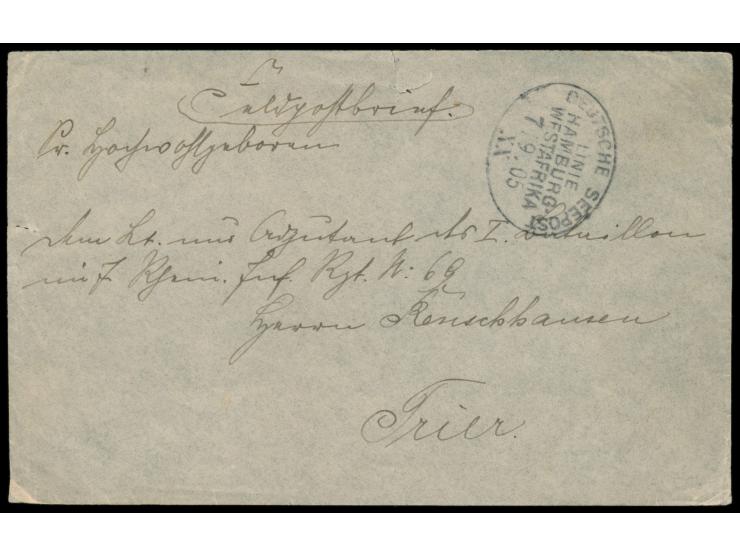 Feldpostbrief.
Sr. Hochwohlgeboren
dem Lt. und Adjutant des I. Bataillon
im 7. Rhein. Inf. Rgt. N: 69
Herrn Renschhausen
Trier.
DEUTSCHE SEEPOST
LINIE
HAMBURG-
WESTAFRIKA
7 9 05